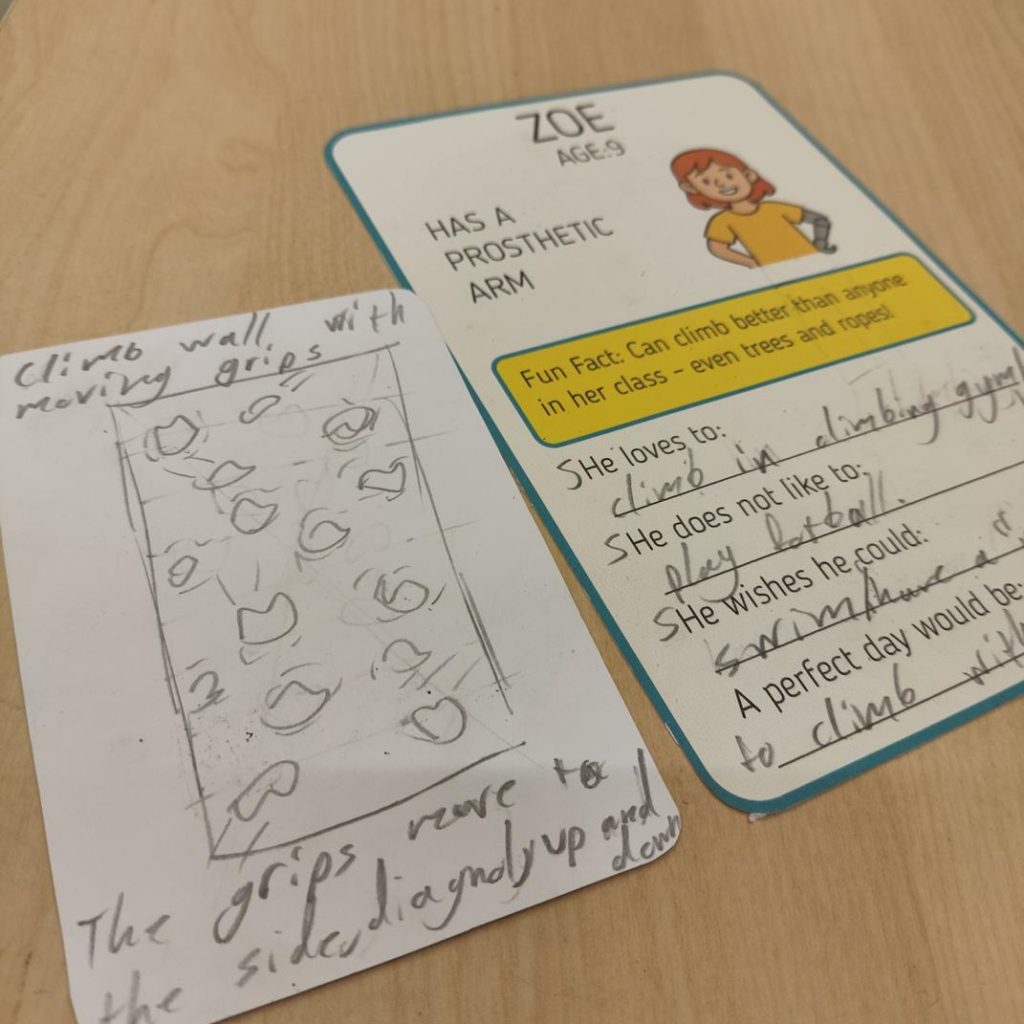 climb wall with
moving grips
The grips move to
the sides, diagnoly up and
down
ZOE
AGE:9
HAS A
PROSTHETIC
ARM
Fun Fact: Can climb better than anyone
in her class – even trees and ropes!
SHe loves to:
climb in climbing gym
SHe does not like to:
play fotball.
SHe wishes he could:
swim/have a
A perfect day would be:
to climb with